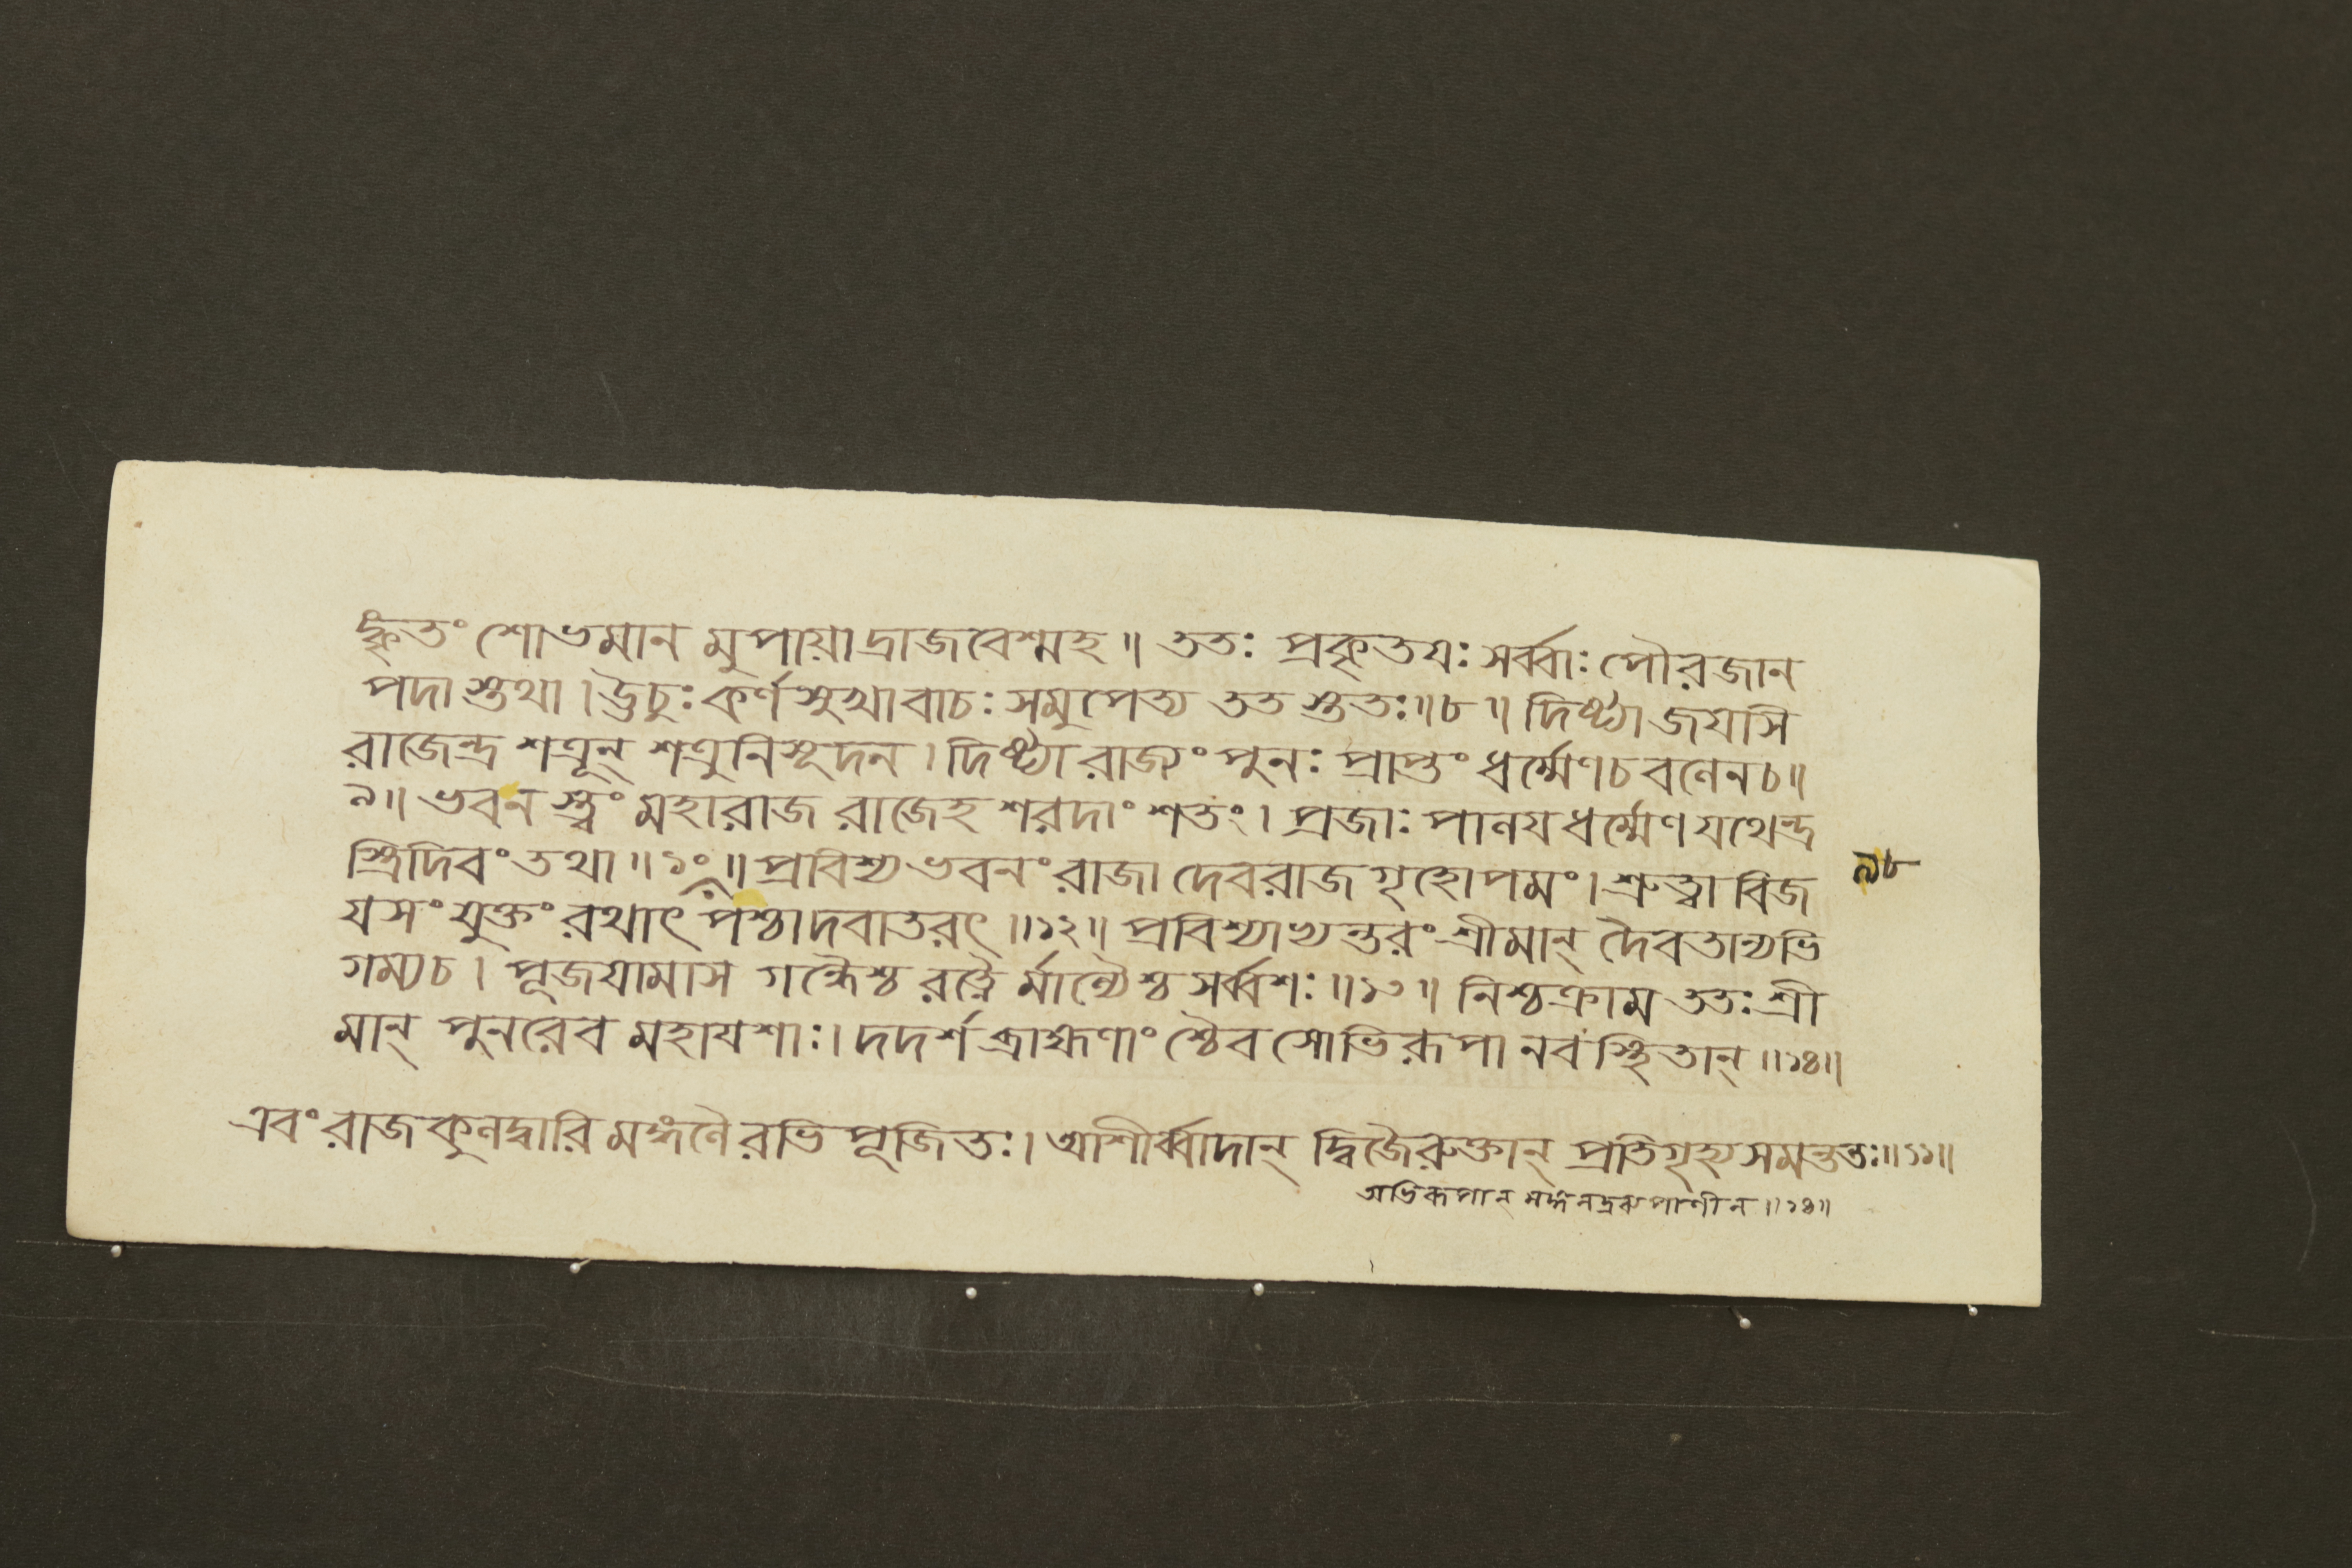 ঙ্কৃতং শোভমান মুপায়াদ্রাজবেশ্মহ॥ ততঃ প্রকৃতযঃ সর্ব্বাঃ পৌরজান
পদাস্তথা। ঊচুঃ কর্ণসুখাবাচঃ সমুপেত্য ততস্ততঃ॥৮॥ দিষ্ট্যা জযসি
রাজেন্দ্র শত্রূন্ শত্রুনিসূদন। দিষ্ট্যা রাজ্যং পুনঃ প্রাপ্তং ধর্ম্মেণচ বলেনচ॥
৯॥ ভবন স্ত্বং মহারাজ রাজেহ শরদাং শতং। প্রজাঃ পালয ধর্ম্মেণ যথেন্দ্র
স্ত্রিদিবং তথা॥১০॥ প্রাবিশ্য ভবনং রাজা দেবরাজ গৃহোপমং। শ্রুত্বা বিজ
৯৮
যসং যুক্তং রথাৎ পশ্চাদবাতরৎ॥১২॥ প্রবিশ্যাভ্যন্তরং শ্রীমান্ দৈবতান্যভি
গম্যচ। পূজযামাস গন্ধৈশ্চ রত্নৈ র্মাল্যৈশ্চ সর্ব্বশঃ॥১৩॥ নিশ্চক্রাম ততঃ শ্রী
মান্ পুনরেব মহাযশাঃ। দদর্শ ব্রাহ্মণাং শ্চৈব সোভিরূপা নবস্থিতান্॥১৪॥
এবং রাজকুলদ্বারি মঙ্গলৈ রভি পূজিতঃ। আশীর্ব্বাদান্ দ্বিজৈরুক্তান্ প্রতিগৃহ্য সমন্ততঃ॥১১॥
অভিরূপান্ মঙ্গলদ্রব্যপাণীন॥১৪॥